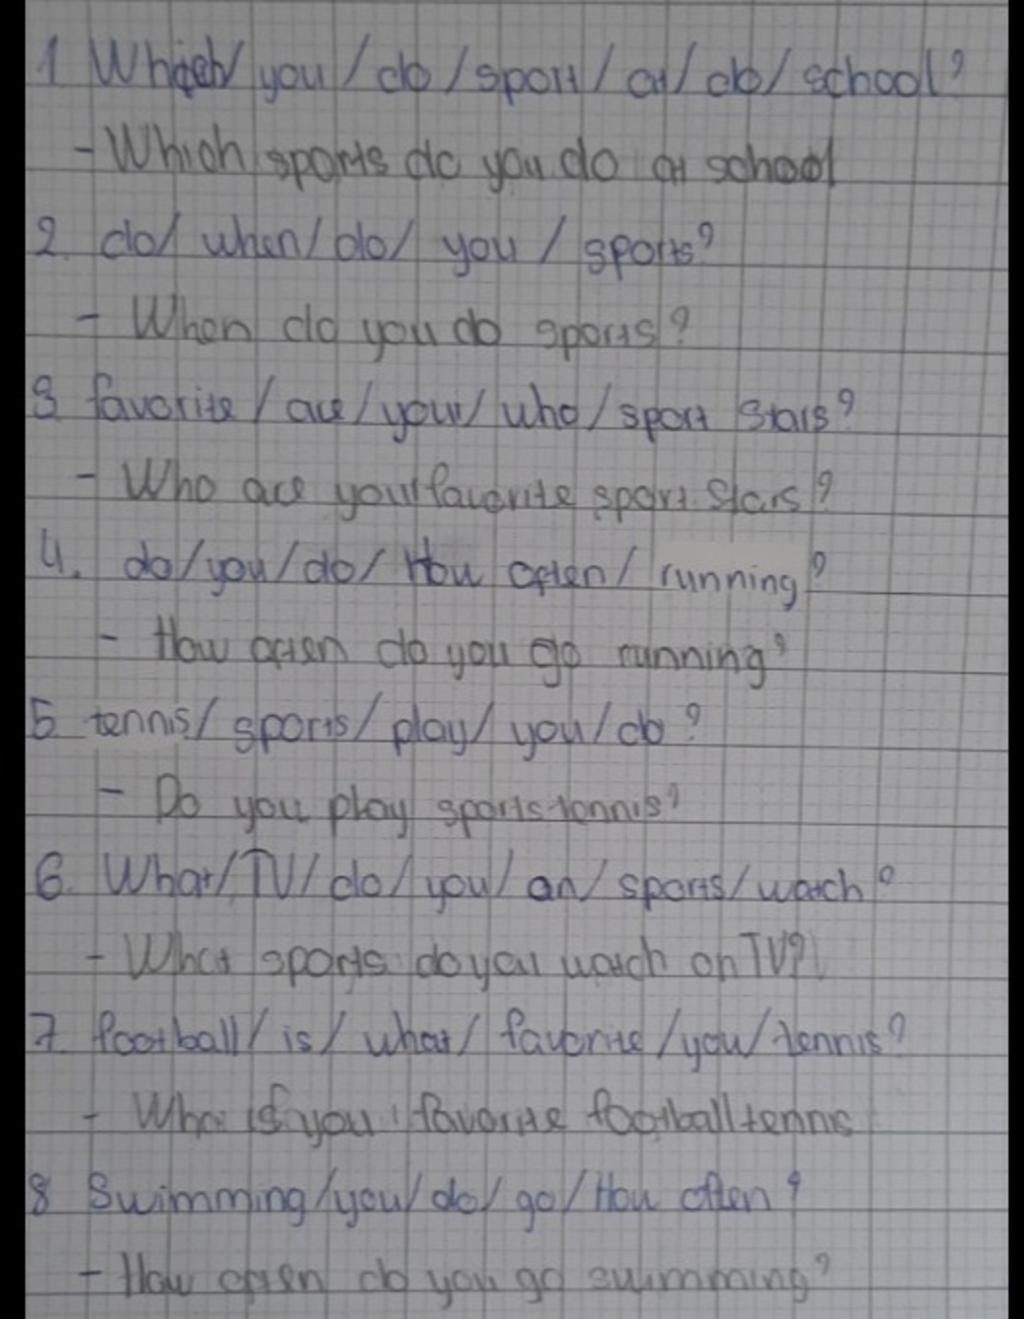 1 Which/ you / do / sport / at / do / school?
- Which sports do you do at school
2. do/ when/ do/ you / sports?
- When do you do sports?
3 favorite / are / your / who / sport stars?
- Who are your favorite sport stars?
4. do/you/do/ How often/ running?
- How often do you go running?
5 tennis/ sports/ play/ you/do?
- Do you play sports tennis?
6. What/TV/ do/ you/ on/ sports/ watch?
- What sports do you watch on TV?
7 football/ is/ what/ favorite /you/ tennis?
- What is you favorite football tennis
8 Swimming/you/do/ go/ How often?
- How often do you go swimming?